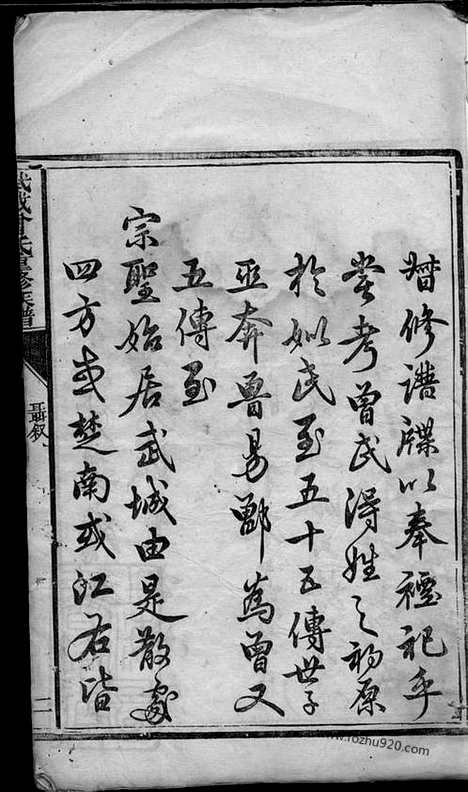 Let修譜牒以奉禋祀乎
嘗考曾氏得姓之初原
於姒氏至五十五傳世子
巫奔魯易鄫為曾又
五傳至
宗聖始居武城由是散處
四方或楚南或江右皆
武城曾氏重修族譜
聶叙
二
www.rozhu920.com